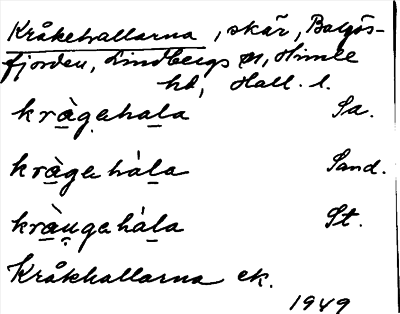 Kråkehallarna, skär, Balgös-
fjorden, Lindbergs sn, Himle
hd, Hall. l.
kràgehala Sa.
kràgehàla Sand.
kràu̥gehàla St.
Kråkhallarna ek.
1949